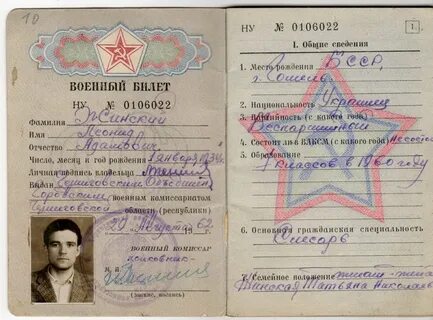 10
ВОЕННЫЙ БИЛЕТ
НУ № 0106022
Фамилия
Имя Леонид
Отчество Адамович
Число, месяц и год рождения 1 января 1934 г.
Личная подпись владельца
Выдан Черниговским Объединён
Городским военным комиссариатом
Черниговской области (республики)
20 Августа 19 62 г.
ВОЕННЫЙ КОМИССАР
полковник
М. П.
(звание, подпись)
НУ № 0106022
1.
I. Общие сведения
1. Место рождения БССР,
г. Гомель
2. Национальность Украинец
3. Партийность (с какого года)
Беспартийный
4. Состоял ли в ВЛКСМ (с какого года) Не состоял
5. Образование
7 классов в 1960 году
6. Основная гражданская специальность
Слесарь
7. Семейное положение женат - жена
Татьяна Николаевна